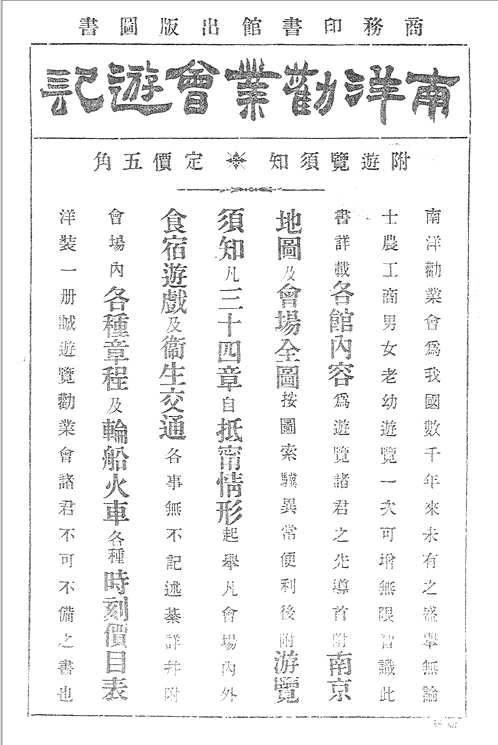 商務印書館出版圖書
南洋勸業會遊記
附遊覽須知 定價五角
南洋勸業會爲我國數千年來未有之盛舉無論
士農工商男女老幼遊覽一次可增無限智識此
書詳載各館內容爲遊覽諸君之先導首附南京
地圖及會場全圖按圖索驥異常便利後附游覽
須知凡三十四章自抵甯情形起舉凡會場內外
食宿遊戲及衞生交通各事無不記述綦詳幷附
會場內各種章程及輪船火車各種時刻價目表
洋裝一册誠遊覽勸業會諸君不可不備之書也